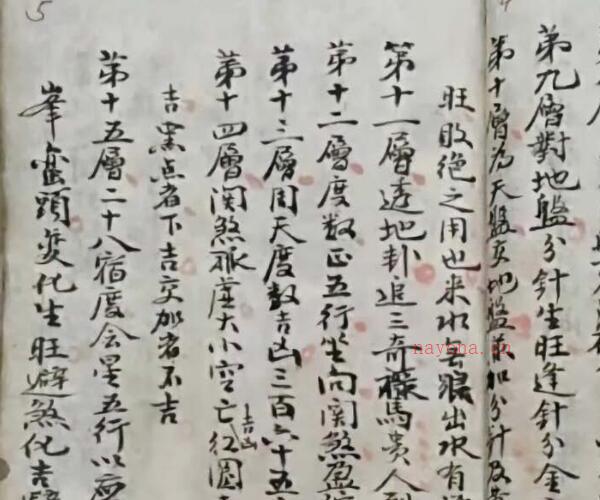 第九層對地盤分針生旺逢針分金
第十層為天盤交地盤並加分計及
旺敗絕之用也來水云源出水有
第十一層透地卦追三奇祿馬貴人到
第十二層度數正五行坐向関煞盈
第十三層周天度數吉凶三百六十五
第十四層関煞、度大小空亡紅圓吉凶
吉黑点者下吉交加者不吉
第十五層二十八宿度会星五行以
峯巒頭變化生旺避煞化吉
5
nayona.cn